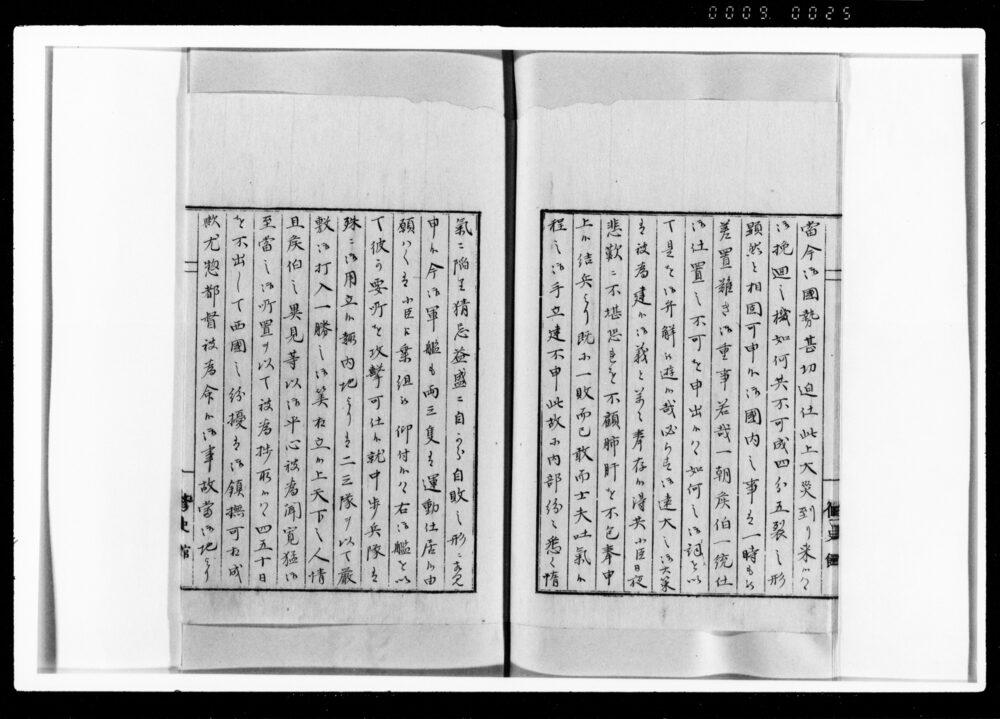 0009 0025
當今御國勢甚切迫仕此上大災到り来候ハヽ
御挽廻之機如何共不可成四分五裂之形
顕然と相固可申候御國内之事者一時も御
差置難き御重事若哉一朝侯伯一統仕
御仕置之不可を申出候ハヽ如何之御詞を以
下是を御弁解被遊候哉必らす御遠大之御大策
者被為建候御義と萬々奉存候得共小臣日夜
悲歎ニ不堪恐をも不顧肺肝を不包奉申
上候結兵より既ニ一敗而已敢而士夫吐氣候
程之御手立達不申此故ニ内部紛々悉く惰
氣ニ陥至猜忌益盛ニ自から自敗之形ニ見へ
申候今御軍艦も両三隻者運動仕居候由
願ハくハ小臣に乗組被 仰付候ハヽ右御艦を以
て彼か要所を攻撃可仕候就中歩兵隊者
殊ニ御用立候趣内地より者二三隊ヲ以て厳
敷御打入一勝之御算相立候上天下之人情
且侯伯之異見等以御平心被為聞寛猛御
至當之御所置ヲ以て被為抄取候ハヽ四五十日
を不出して西國之紛擾者御鎮撫可相成
歟尤惣都督被為命候御事故當御地より
修史館
修史館